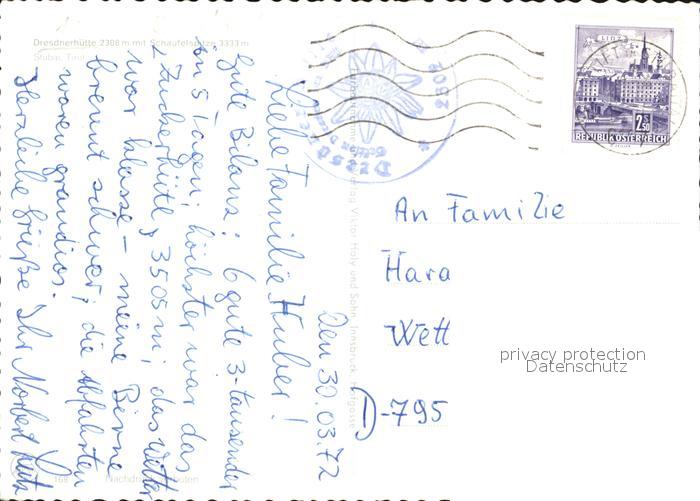 Dresdnerhütte 2308 m mit Schaufelspitze, 3333 m
Stubai, Tirol
Den 30.03.72
Liebe Familie Huber!
Gute Bilanz: 6 gute 3-tausender
in 5 Tagen; höchster war das
"Zuckerhütl" 3505 m; das Wetter
war klasse – meine Birne
brennt schwer; die Abfahrten
waren grandios.
Herzliche Grüße Ihr Norbert
An Familie
Hara
Wett
D-795
privacy protection
Datenschutz
LINZ
2.50
REPUBLIK ÖSTERREICH
2308
Viktor Holy und Sohn, Innsbruck
168